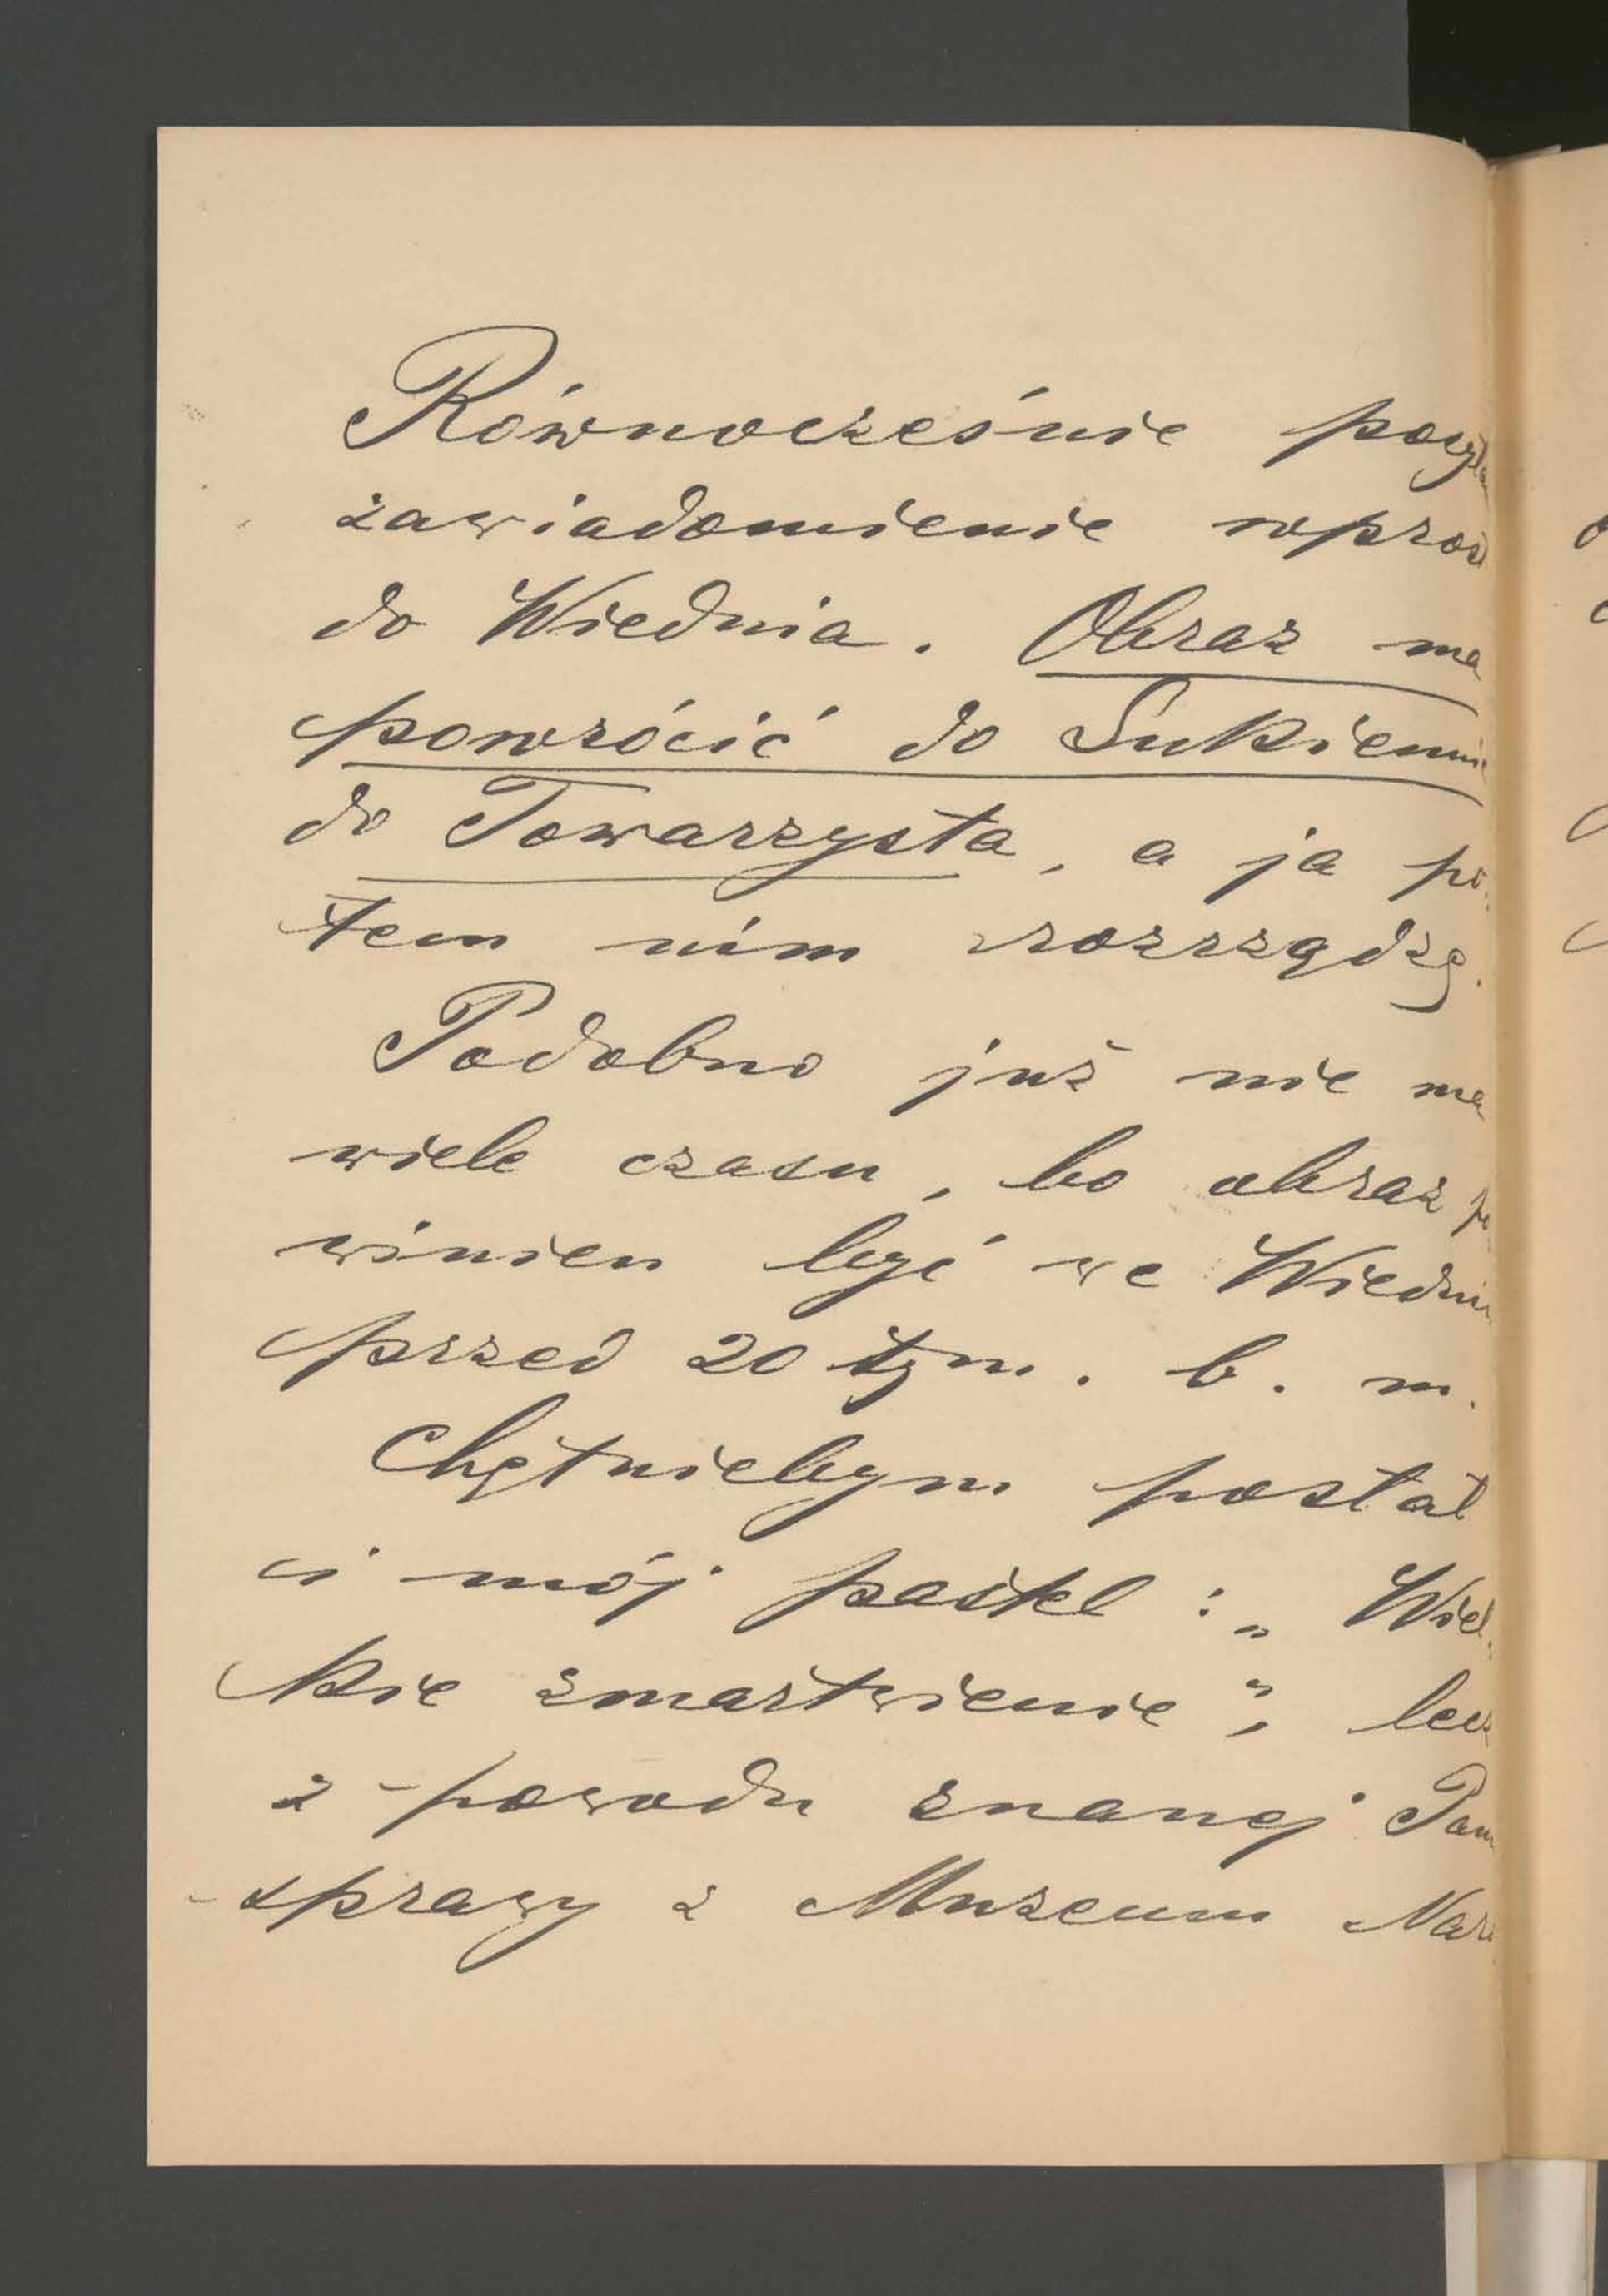 Równocześnie posyła
zawiadomienie wprost
do Wiednia. Obraz ma
powrócić do Sukiennic
do Towarzysta, a ja po-
tem nim rozrządzę.
Podobno już nie ma
wiele czasu, bo obraz po-
winien być we Wiedniu
przed 20 tym. b. m.
Chętniebym posłał
i mój pastel: „Wiel-
kie zmartwienie”, lecz
z powodu znanej Panu
sprawy z Muzeum